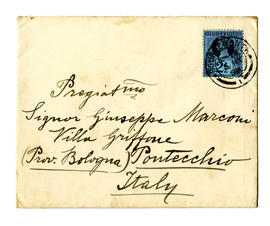 Pregiatmo
Signor Giuseppe Marconi
Villa Griffone
(Prov. Bologna) Pontecchio
Italy